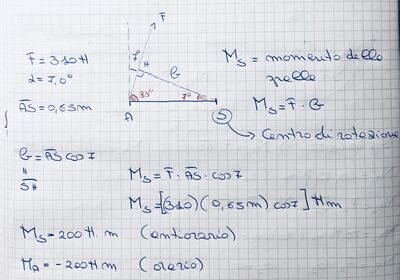 F̄ = 310 N
α = 7,0°
A̅S̅ = 0,65 m
F
7°
H
b
83°
7°
A
S
M_S = momento delle
spalle
M_S = F̄ · b
Centro di rotazione
b = A̅S̅ cos 7
"
S̅H̅
M_S = F̄ · A̅S̅ · cos 7
M_S = [(310) (0,65 m) cos 7] N m
M_S = 200 N · m (antiorario)
M_A = - 200 N m (orario)